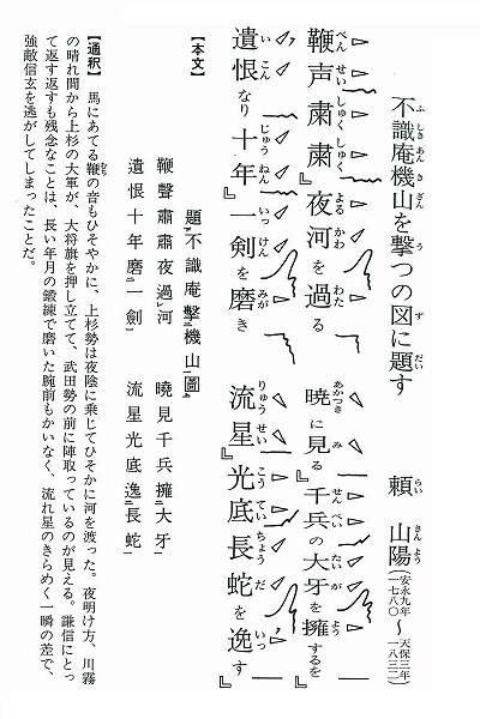 不識庵機山を撃つの図に題す　頼　山陽（安永九年 一七八〇 〜 天保三年 一八三二）
鞭声粛粛』夜河を過る　暁に見る』千兵の大牙を擁するを』
遺恨なり十年』一剣を磨き　流星』光底長蛇を逸す』
【本文】
題不識庵擊機山圖
鞭聲肅肅夜過河　曉見千兵擁大牙
遺恨十年磨一劍　流星光底逸長蛇
【通釈】　馬にあてる鞭の音もひそやかに、上杉勢は夜陰に乗じてひそかに河を渡った。夜明け方、川霧
の晴れ間から上杉の大軍が、大将旗を押し立てて、武田勢の前に陣取っているのが見える。謙信にとっ
て返す返すも残念なことは、長い年月の鍛練で磨いた腕前もかいなく、流れ星のきらめく一瞬の差で、
強敵信玄を逃がしてしまったことだ。